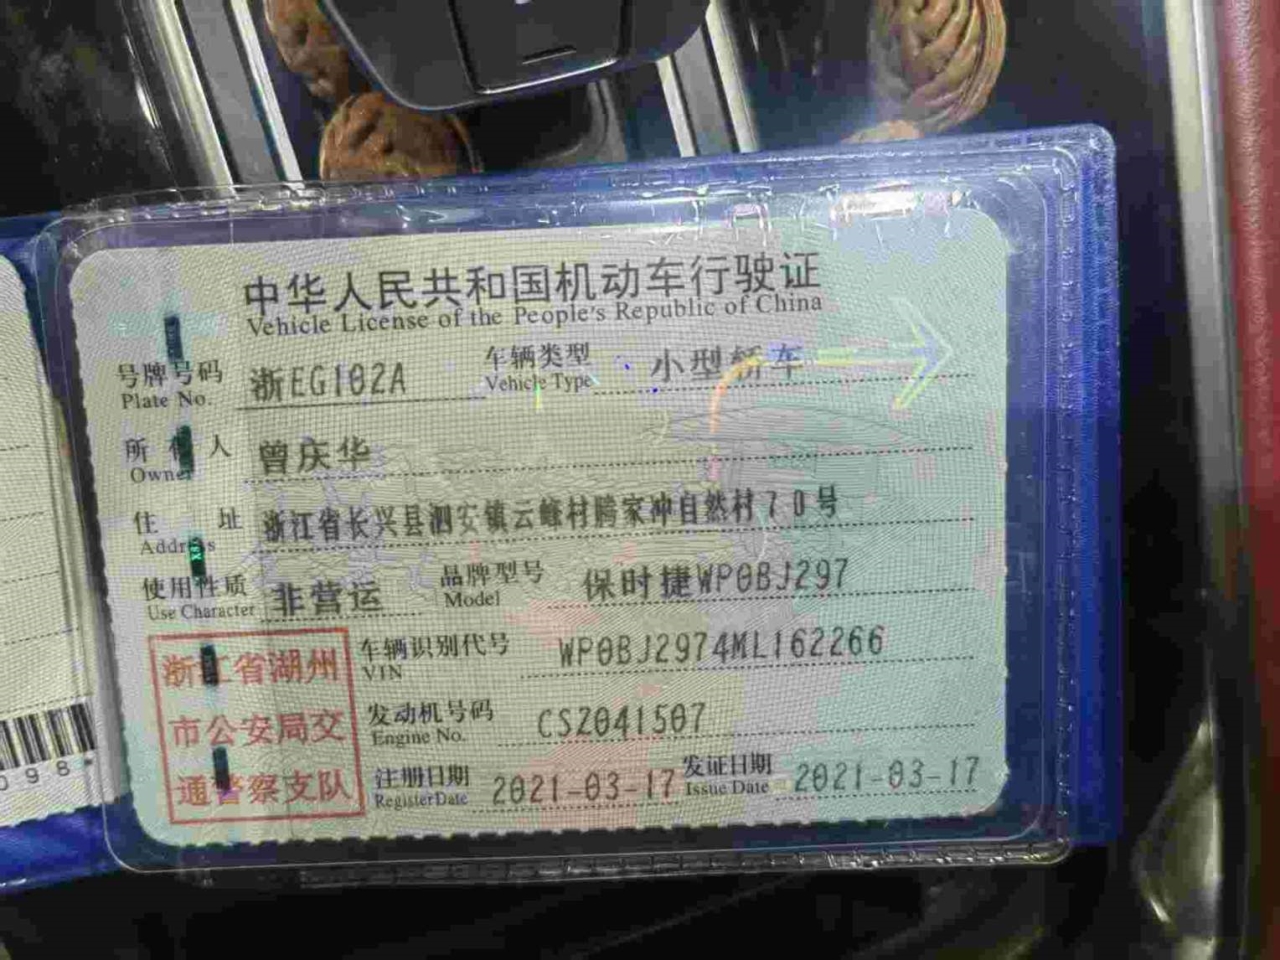 中华人民共和国机动车行驶证
Vehicle License of the People's Republic of China
号牌号码 浙EG102A 车辆类型 小型轿车
Plate No. Vehicle Type
所有人 曾庆华
Owner
住址 浙江省长兴县泗安镇云峰村腾家冲自然村70号
Address
使用性质 非营运 品牌型号 保时捷WP0BJ297
Use Character Model
浙江省湖州
市公安局交
通警察支队
车辆识别代号 WP0BJ2974ML162266
VIN
发动机号码 CSZ041507
Engine No.
注册日期 2021-03-17 发证日期 2021-03-17
Register Date Issue Date
098*